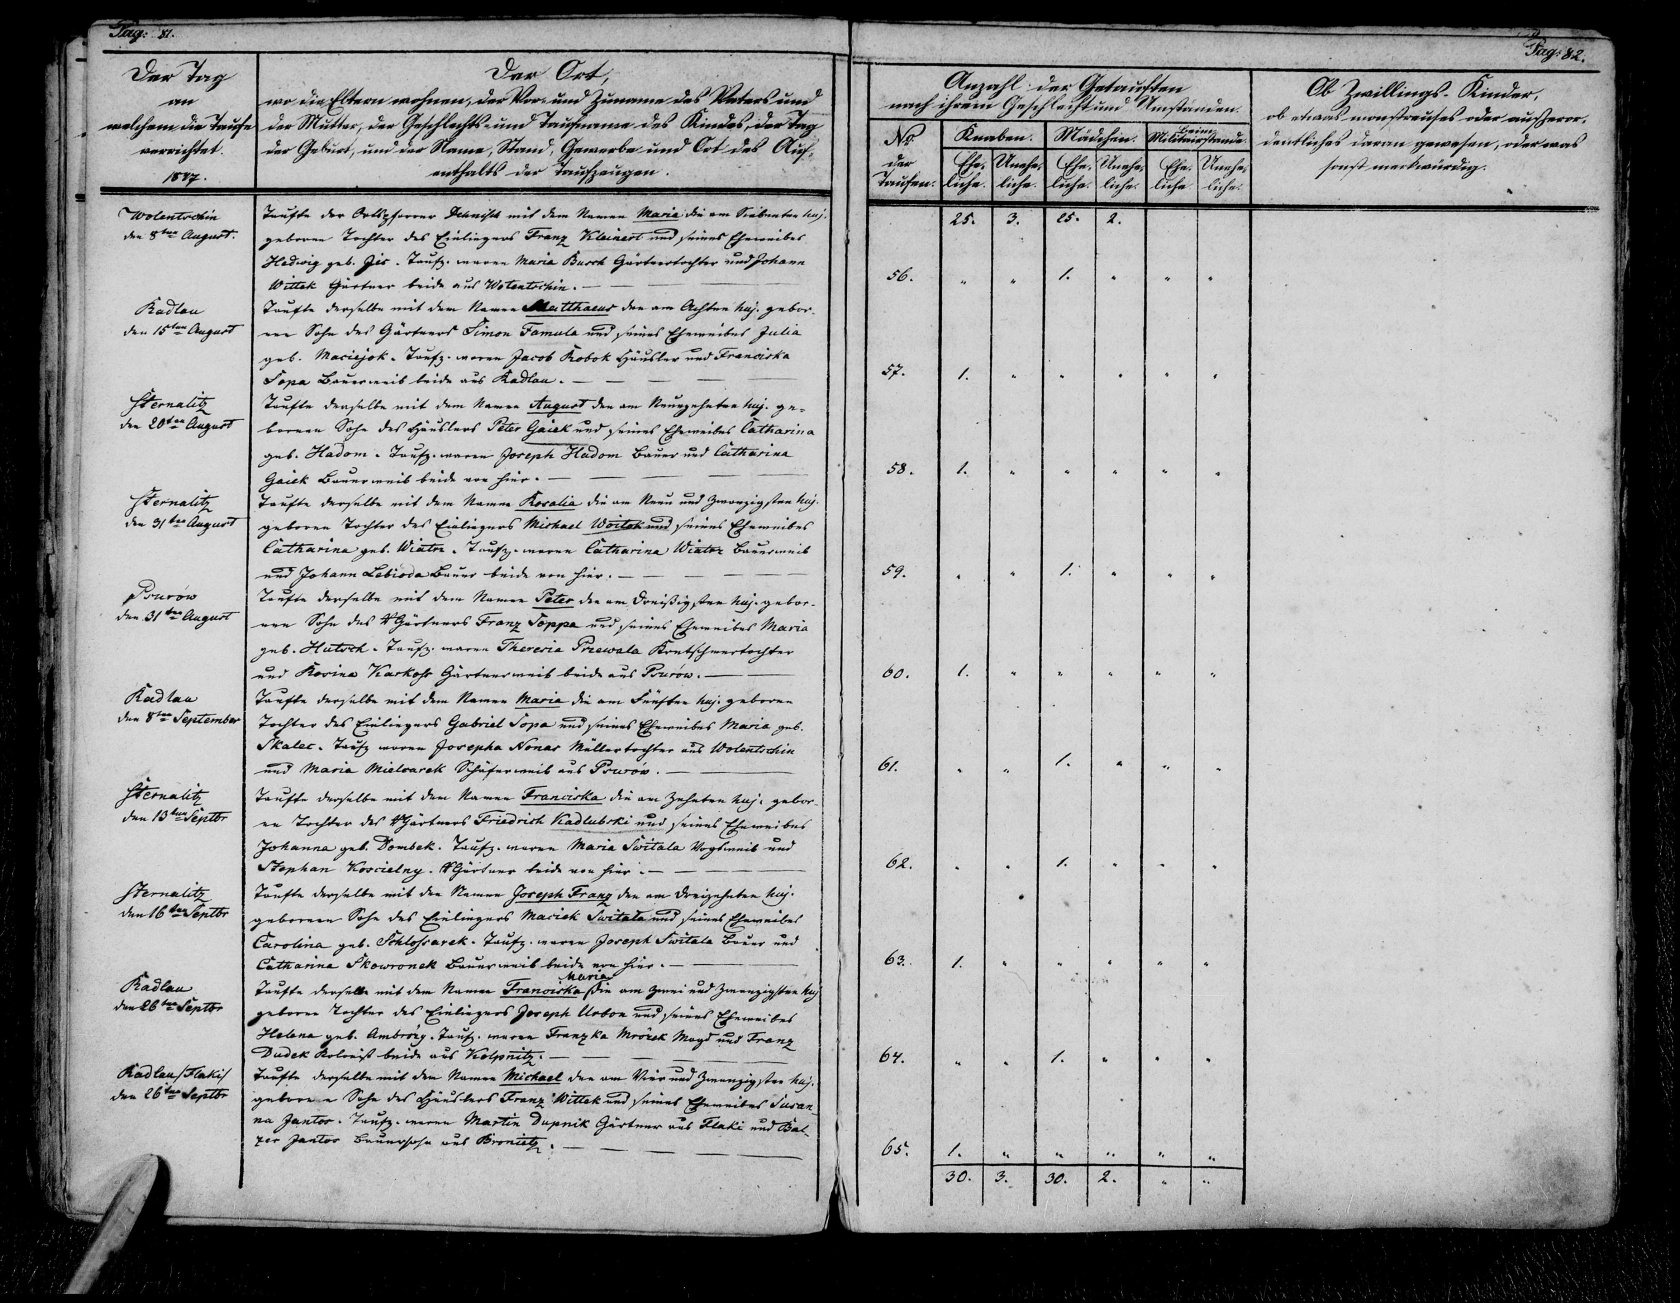 Pag: 81.
Der Tag
an
welchem die Taufe
verrichtet.
1847.
Der Ort,
wo die Eltern wohnen, der Vor- und Zuname des Vaters und
der Mutter, der Geschlechts- und Taufname des Kindes, der Tag
der Geburt, und der Name, Stand, Gewerbe und Ort des Auf-
enthalts der Taufzeugen.
Wolentschin
den 8ten August.
Taufte der Ortspfarrer mit dem Namen Maria die am Siebenten huj.
geborene Tochter des Einliegers Franz Kleinert und seines Eheweibes
Hedwig geb. Jis. Taufz. waren Maria Busch Gärtnertochter und Johann
Wittek Gärtner beide aus Wolentschin.
Kadlau
den 15ten August
Taufte derselbe mit dem Namen Matthaeus den am Achten huj. gebor-
nen Sohn des Gärtners Simon Famula und seines Eheweibes Julia
geb. Maciejok. Taufz. waren Jacob Kobok Häusler und Franciska
Sopa Bauerweib beide aus Kadlau.
Sternalitz
den 20ten August
Taufte derselbe mit dem Namen August den am Neunzehnten huj. ge-
bornen Sohn des Häuslers Peter Gaiek und seines Eheweibes Catharina
geb. Hadom. Taufz. waren Joseph Hadom Bauer und Catharina
Gaiek Bauerweib beide von hier.
Sternalitz
den 31ten August
Taufte derselbe mit dem Namen Rosalia die am Neun und Zwanzigsten huj.
geborene Tochter des Einliegers Michael Woitek und seines Eheweibes
Catharina geb. Wiatrz. Taufz. waren Catharina Wiatrz Bauerweib
und Johann Lebioda Bauer beide von hier.
Psurow
den 31ten August
Taufte derselbe mit dem Namen Peter den am Dreißigsten huj. gebor-
nen Sohn des Gärtners Franz Soppa und seines Eheweibes Maria
geb. Hutsch. Taufz. waren Theresia Priewala Kretschmertochter
und Rosina Karkosz Gärtnerweib beide aus Psurow.
Kadlau
den 8ten September
Taufte derselbe mit dem Namen Maria die am Fünften huj. geborene
Tochter des Einliegers Gabriel Sopa und seines Eheweibes Maria geb.
Skalec. Taufz. waren Josepha Nonas Müllertochter aus Wolentschin
und Maria Mielcarek Schäferweib aus Psurow.
Sternalitz
den 13ten Septbr
Taufte derselbe mit dem Namen Franciska die am Zehnten huj. gebor-
ne Tochter des Gärtners Friedrich Kadlubski und seines Eheweibes
Johanna geb. Dombek. Taufz. waren Maria Switala Vogtweib und
Stephan Koscielny Gärtner beide von hier.
Sternalitz
den 16ten Septbr
Taufte derselbe mit den Namen Joseph Franz den am Dreizehnten huj.
geborenen Sohn des Einliegers Maciek Switala und seines Eheweibes
Carolina geb. Schlossarek. Taufz. waren Joseph Switala Bauer und
Catharina Skowronek Bauerweib beide von hier.
Kadlau
den 26ten Septbr
Maria
Taufte derselbe mit dem Namen Franciska die am Zwei und Zwanzigsten huj
geborene Tochter des Einliegers Joseph Urbon und seines Eheweibes
Helena geb. Ambrozy. Taufz. waren Franzka Mrozek Magd und Franz
Dudek Kolonist beide aus Kolpnitz.
Kadlau /Flaki/
den 26ten Septbr
Taufte derselbe mit dem Namen Michael den am Vier und Zwanzigsten huj.
geborenen Sohn des Häuslers Franz Wittek und seines Eheweibes Susan-
na Jantos. Taufz. waren Martin Dupnik Gärtner aus Flaki und Bal-
zer Jantos Bauerssohn aus Bronietz.
Pag: 82.
Anzahl der Getauften
nach ihrem Geschlecht und Umstanden.
No der Taufen.
Knaben. Mädchen. Beim Militairstande
Eheliche. Uneheliche. Eheliche. Uneheliche. Eheliche. Uneheliche.
Ob Zwillings-Kinder,
ob etwas monstreuses oder außeror-
dentliches daran gewesen, oder was
sonst merkwürdig.
25. 3. 25. 2.
56. " " 1. " " "
57. 1. " " " " "
58. 1. " " " " "
59. " " 1. " " "
60. 1. " " " " "
61. " " 1. " " "
62. " " 1. " " "
63. 1. " " " " "
64. " " 1. " " "
65. 1. " " " " "
30. 3. 30. 2. " "